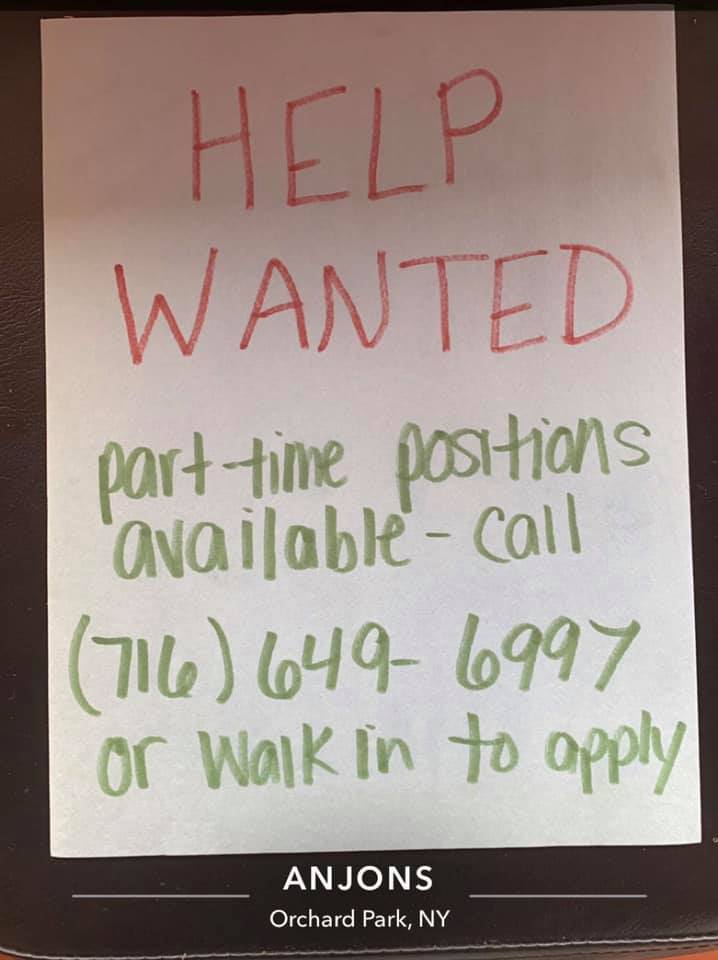 HELP
WANTED
part-time positions
available - call
(716) 649-6997
or walk in to apply
ANJONS
Orchard Park, NY